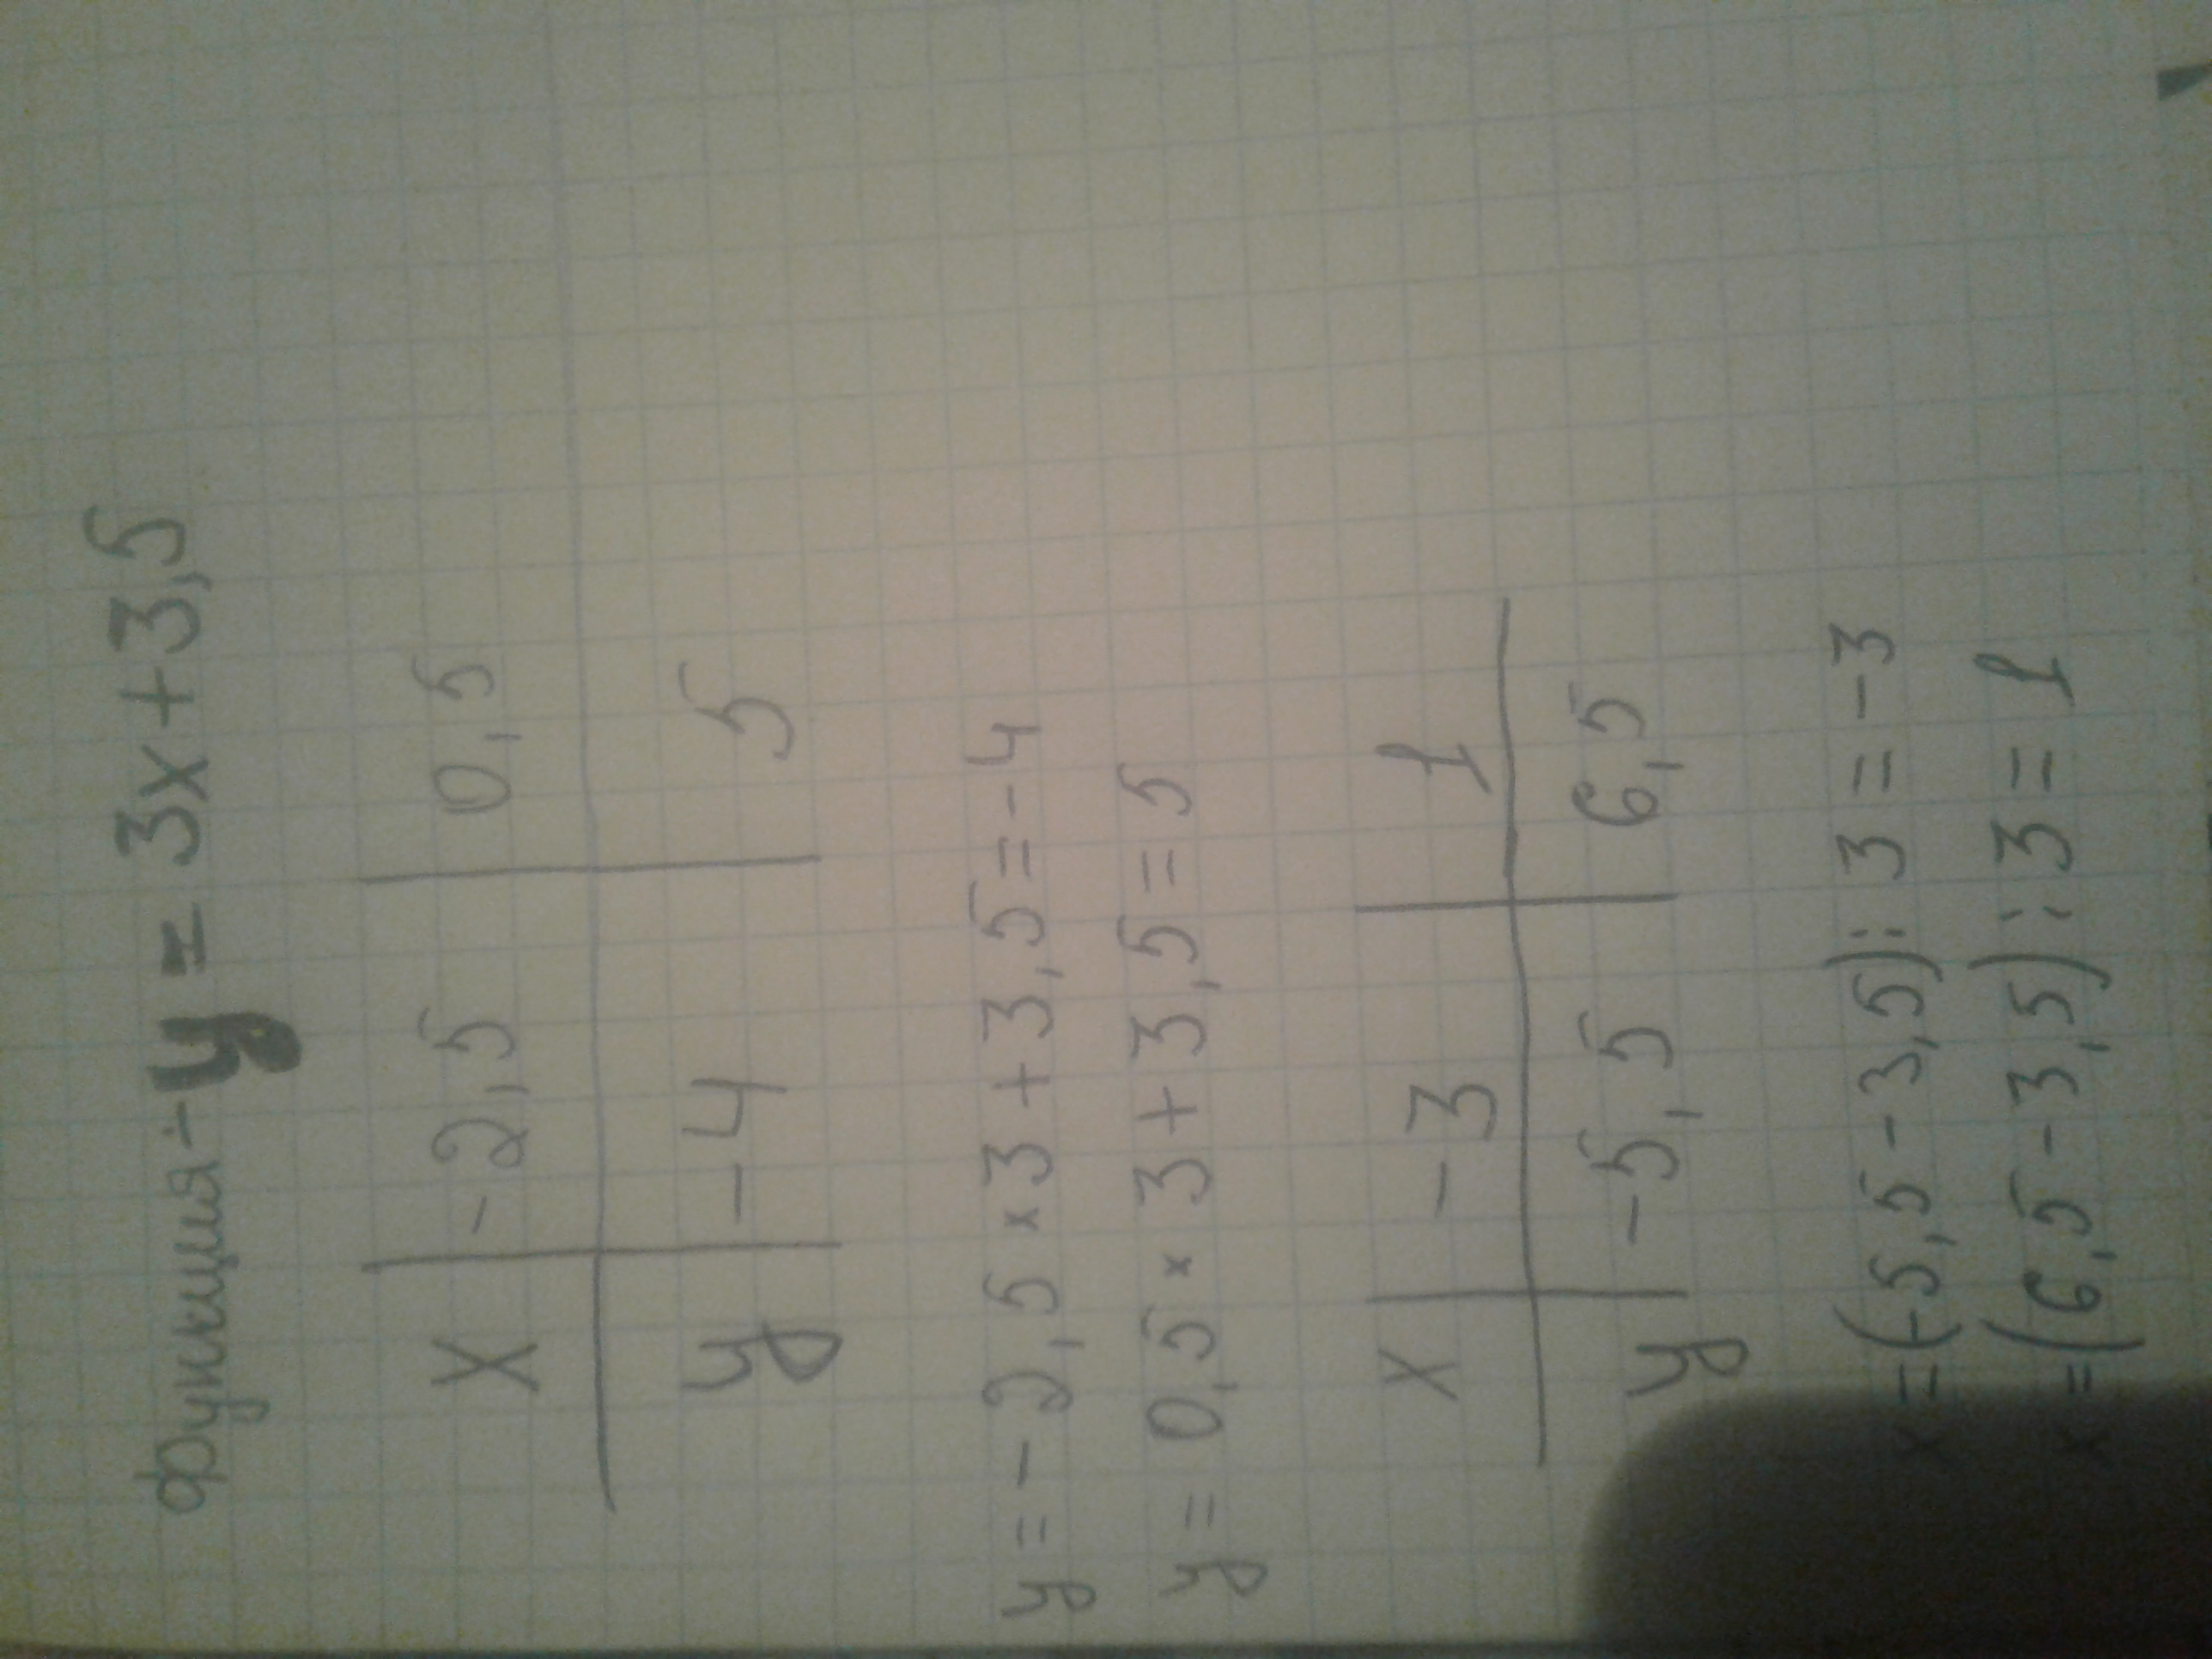 Функция - y = 3x + 3,5
x -2,5 0,5
y -4 5
y = -2,5 × 3 + 3,5 = -4
y = 0,5 × 3 + 3,5 = 5
x -3 1
y -5,5 6,5
x = (-5,5 - 3,5) : 3 = -3
x = (6,5 - 3,5) : 3 = 1